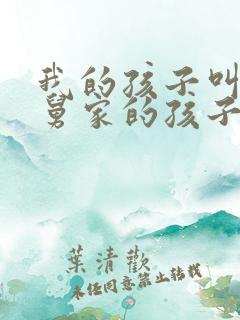 我的孩子叫
舅家的孩子
葉清歡
未经同意禁止转载